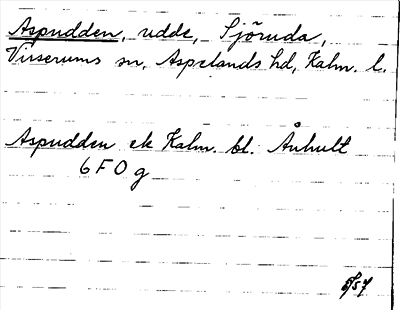 Aspudden, udde, Sjöruda,
Virserums sn, Aspelands hd, Kalm. l.
Aspudden ek Kalm. bl. Ånhult
6 F 0 g